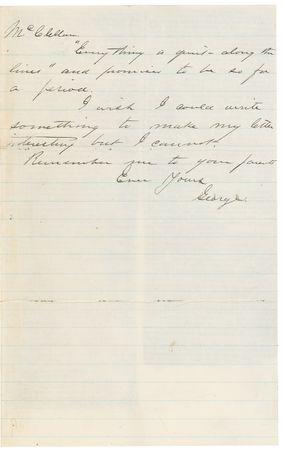 McClellan.
"Everything is quiet along the
lines" and promises to be so for
a period.
I wish I could write
something to make my letter
interesting but I cannot.
Remember me to your parents
Ever Yours
George.